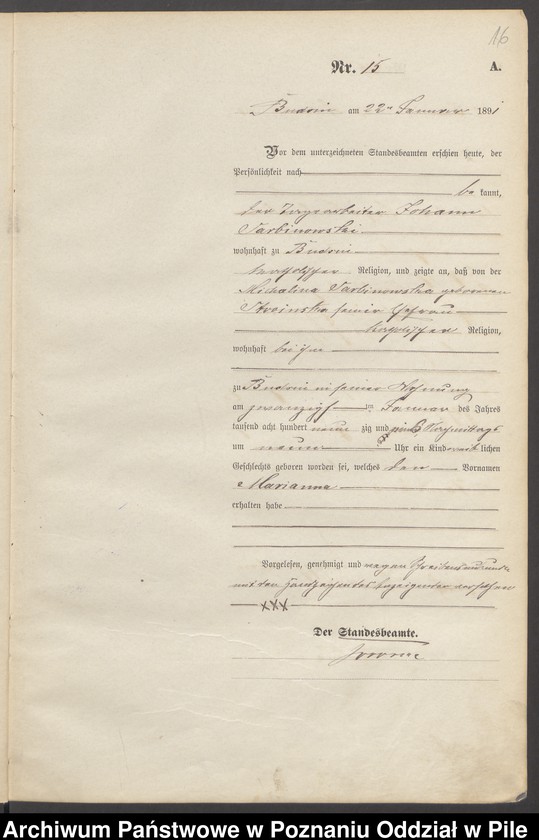 16
Nr. 15 A.
am 22ten Januar 1891
Vor dem unterzeichneten Standesbeamten erschien heute, der
Persönlichkeit nach
be kannt,
der Johann
Sarbinowski
wohnhaft zu
katholischer Religion, und zeigte an, daß von der
Michalina Sarbinowska geborenen
seiner Ehefrau
katholischer Religion,
wohnhaft bei ihm
zu in seiner Wohnung
am zwanzigsten Januar des Jahres
tausend acht hundert neun zig und eins Nachmittags
um neun Uhr ein Kind weiblichen
Geschlechts geboren worden sei, welches den Vornamen
Marianna
erhalten habe
Vorgelesen, genehmigt und wegen
mit den Handzeichen des Anzeigenden versehen
XXX
Der Standesbeamte.
Archiwum Państwowe w Poznaniu Oddział w Pile